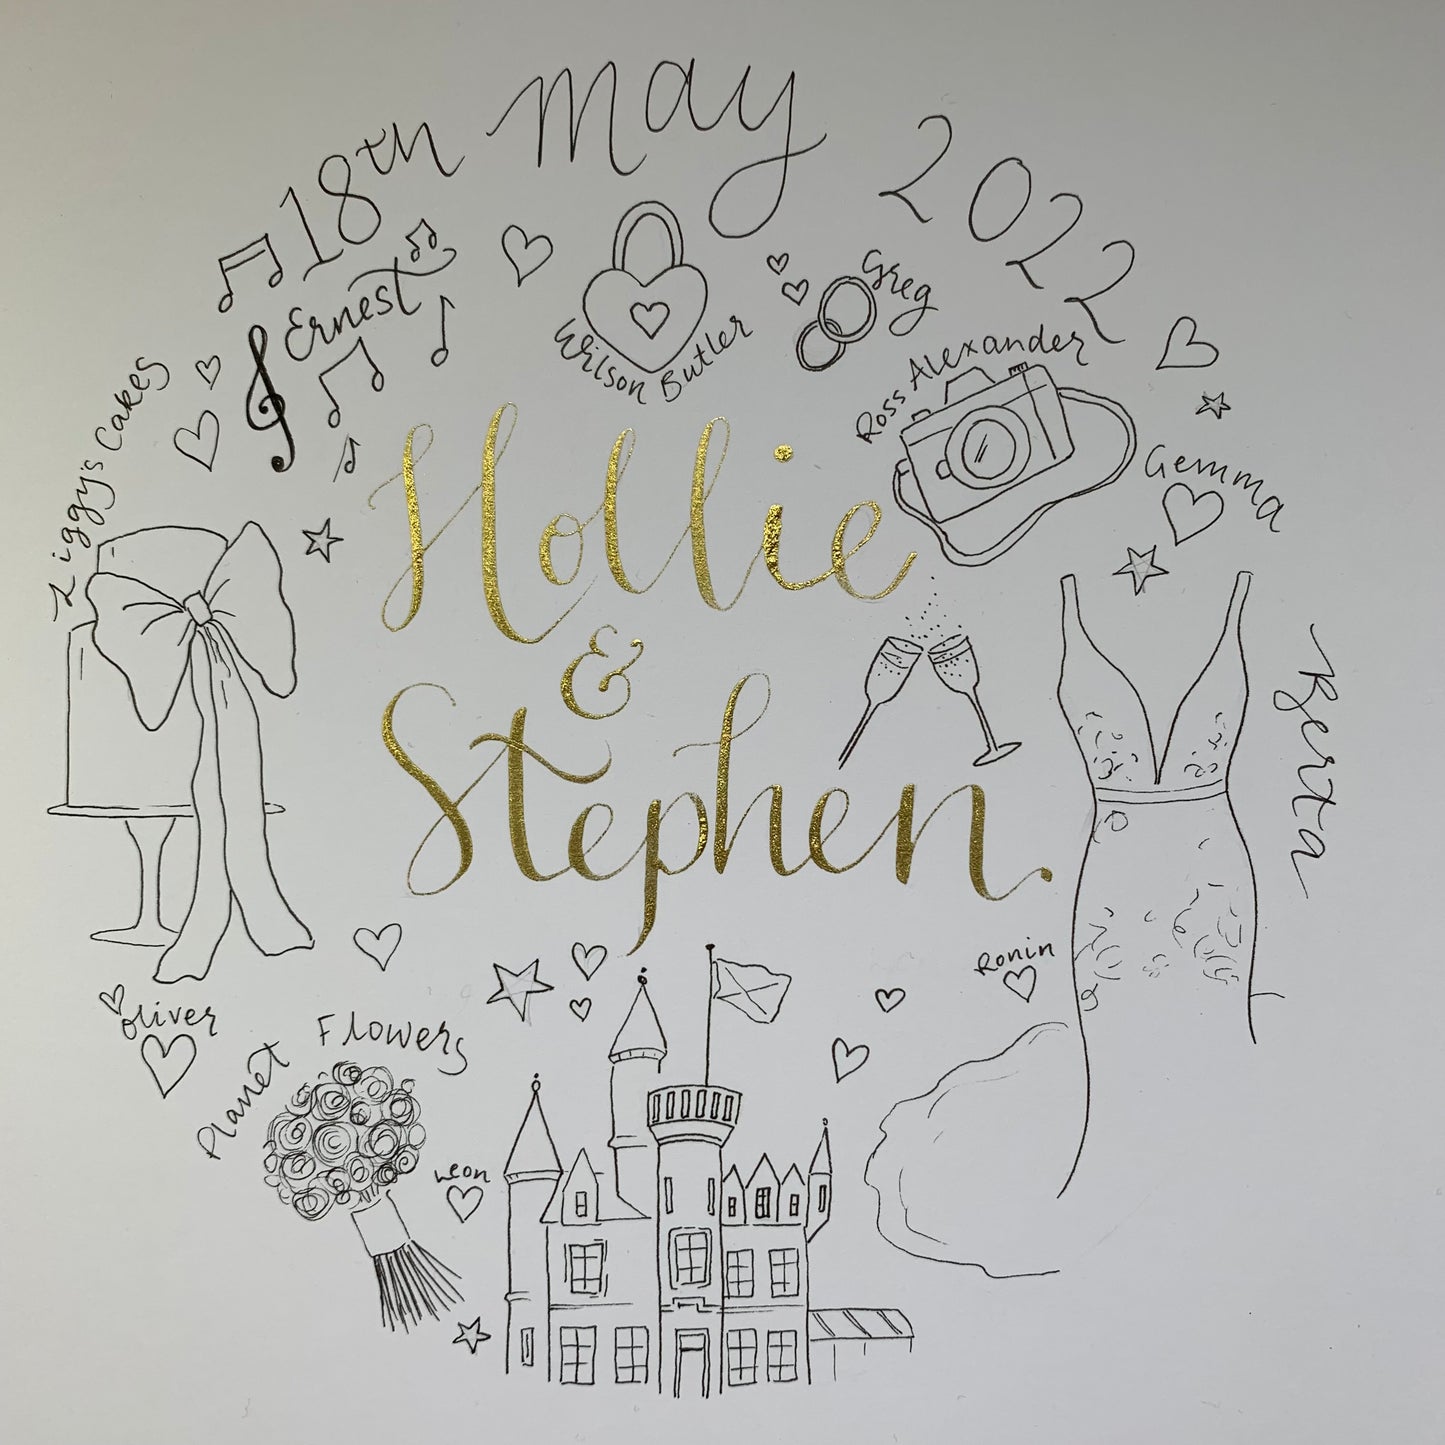 18th May 2022
Ernest
Wilson Butler
Greg
Ross Alexander
Ziggy's Cakes
Gemma
Hollie
&
Stephen.
Berta
Ronin
Oliver
Planet Flowers
Leon